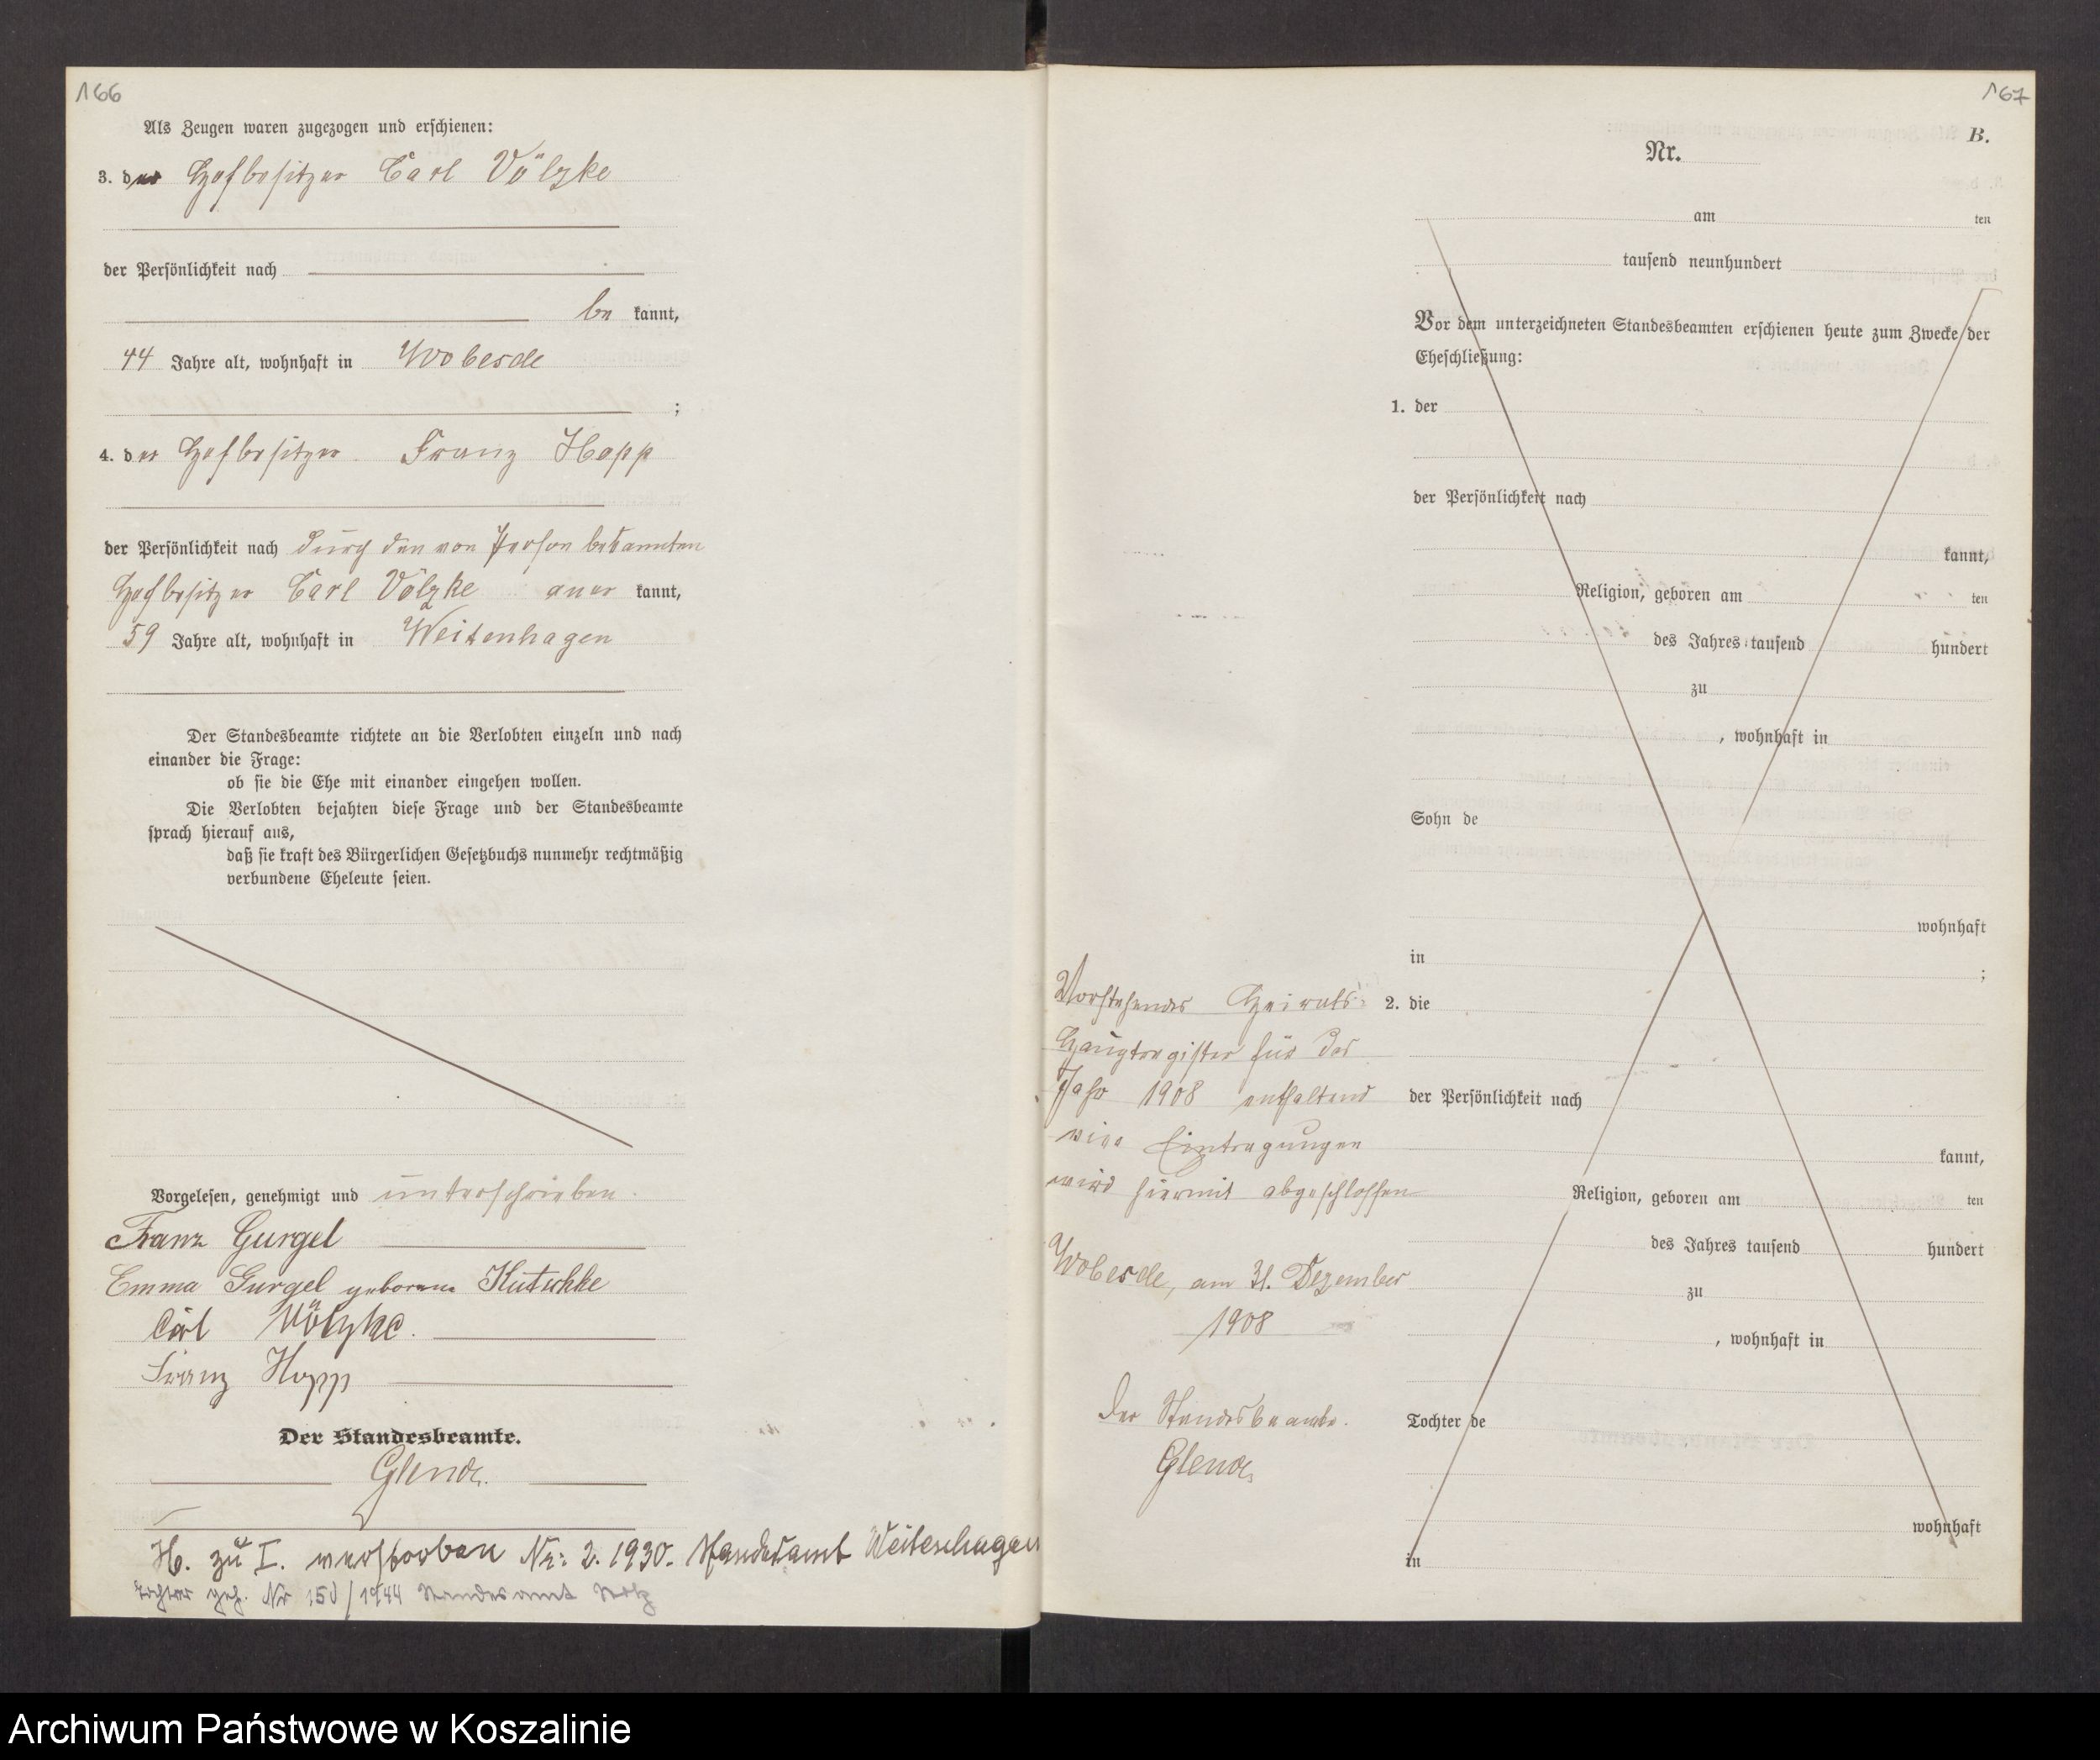 166
Als Zeugen waren zugezogen und erschienen:
3. der Hofbesitzer Carl Völzke
der Persönlichkeit nach
be kannt,
44 Jahre alt, wohnhaft in Wobesde
;
4. der Hofbesitzer Franz Hopp
der Persönlichkeit nach durch den von Person bekannten
Hofbesitzer Carl Völzke aner kannt,
59 Jahre alt, wohnhaft in Weitenhagen
Der Standesbeamte richtete an die Verlobten einzeln und nach
einander die Frage:
ob sie die Ehe mit einander eingehen wollen.
Die Verlobten bejahten diese Frage und der Standesbeamte
sprach hierauf aus,
daß sie kraft des Bürgerlichen Gesetzbuchs nunmehr rechtmäßig
verbundene Eheleute seien.
Vorgelesen, genehmigt und unterschrieben.
Franz Gurgel
Emma Gurgel geborene Kutschke
Carl Völzke.
Franz Hopp
Der Standesbeamte.
H. zu I. verstorben Nr: 2. 1930. Standesamt Weitenhagen
Tochter geh. Nr 150/1944 Standesamt
167
B.
Nr.
am ten
tausend neunhundert
Vor dem unterzeichneten Standesbeamten erschienen heute zum Zwecke der
Eheschließung:
1. der
der Persönlichkeit nach
kannt,
Religion, geboren am ten
des Jahres tausend hundert
zu
, wohnhaft in
Sohn de
wohnhaft
in ;
2. die
der Persönlichkeit nach
kannt,
Religion, geboren am ten
des Jahres tausend hundert
zu
, wohnhaft in
Tochter de
wohnhaft
in
Vorstehendes Heirats-
Hauptregister für das
Jahr 1908 enthaltend
Eintragungen
wird hiermit abgeschlossen
Wobesde, am 31. Dezember
1908
Der Standesbeamte.
Archiwum Państwowe w Koszalinie